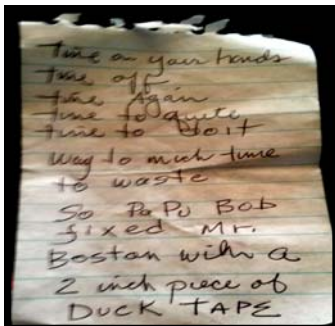 Time on your hands
time off
time Again
time to quite
time to do it
way to much time
to waste
So PaPu Bob
fixed Mr.
Boston with a
2 inch piece of
DUCK TAPE